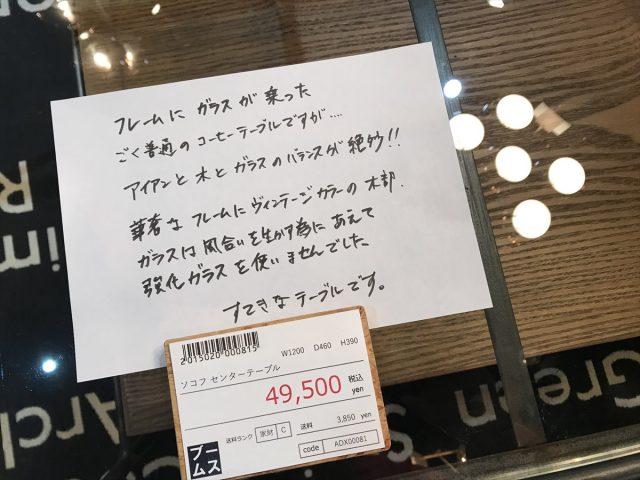 フレームに ガラスが 乗った
ごく普通の コーヒーテーブルですが....
アイアンと 木と ガラスの バランスが 絶妙!!
華奢な フレームに ヴィンテージカラーの 木部.
ガラスは 風合いを生かす為に あえて
強化ガラスを 使いませんでした
すてきな テーブルです。
2015020000815
W1200 D460 H390
ソコフ センターテーブル
49,500 税込 yen
送料ランク 家財 C 送料 3,850 yen
code ADX00081
ブームス
Green
Arc